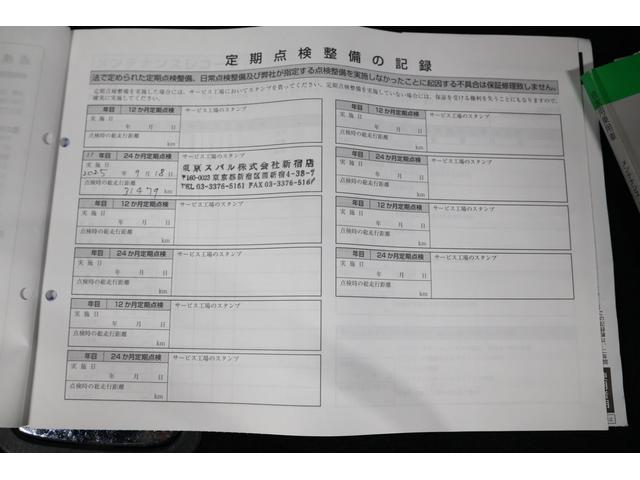 定期点検整備の記録
法で定められた定期点検整備、日常点検整備及び弊社が指定する点検整備を実施しなかったことに起因する不具合は保証修理致しません。
定期点検整備を実施した場合には、サービス工場においてスタンプを貰ってください。定期点検整備を実施していない場合には、保証を受ける権利を失うことにもなりますので、
確実に実施してください。
年目 12か月定期点検 サービス工場のスタンプ
実施日
年 月 日
点検時の総走行距離
km
11 年目 24か月定期点検 サービス工場のスタンプ
実施日
2025 年 9 月 18 日
点検時の総走行距離
71479 km
東京スバル株式会社新宿店
〒160-0023 東京都新宿区西新宿4-38-7
TEL 03-3376-5161 FAX 03-3376-5161
年目 12か月定期点検 サービス工場のスタンプ
実施日
年 月 日
点検時の総走行距離
km
年目 24か月定期点検 サービス工場のスタンプ
実施日
年 月 日
点検時の総走行距離
km
年目 12か月定期点検 サービス工場のスタンプ
実施日
年 月 日
点検時の総走行距離
km
年目 24か月定期点検 サービス工場のスタンプ
実施日
年 月 日
点検時の総走行距離
km
年目 12か月定期点検 サービス工場のスタンプ
実施日
年 月 日
点検時の総走行距離
km
年目 24か月定期点検 サービス工場のスタンプ
実施日
年 月 日
点検時の総走行距離
km
年目 12か月定期点検 サービス工場のスタンプ
実施日
年 月 日
点検時の総走行距離
km
年目 24か月定期点検 サービス工場のスタンプ
実施日
年 月 日
点検時の総走行距離
km